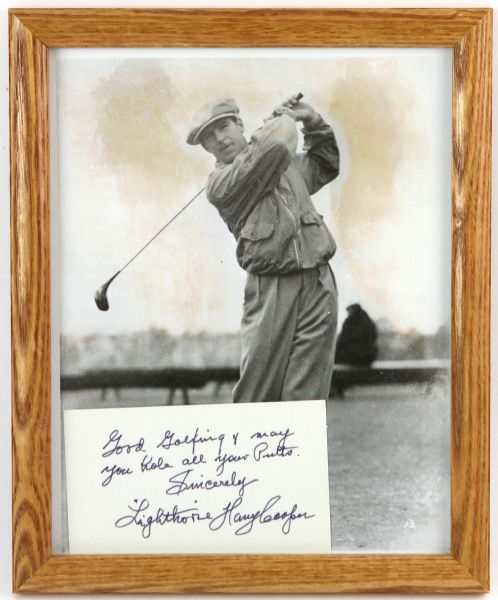 Good Golfing & may
you Hole all your Putts.
Sincerely
"Lighthorse Harry Cooper
13